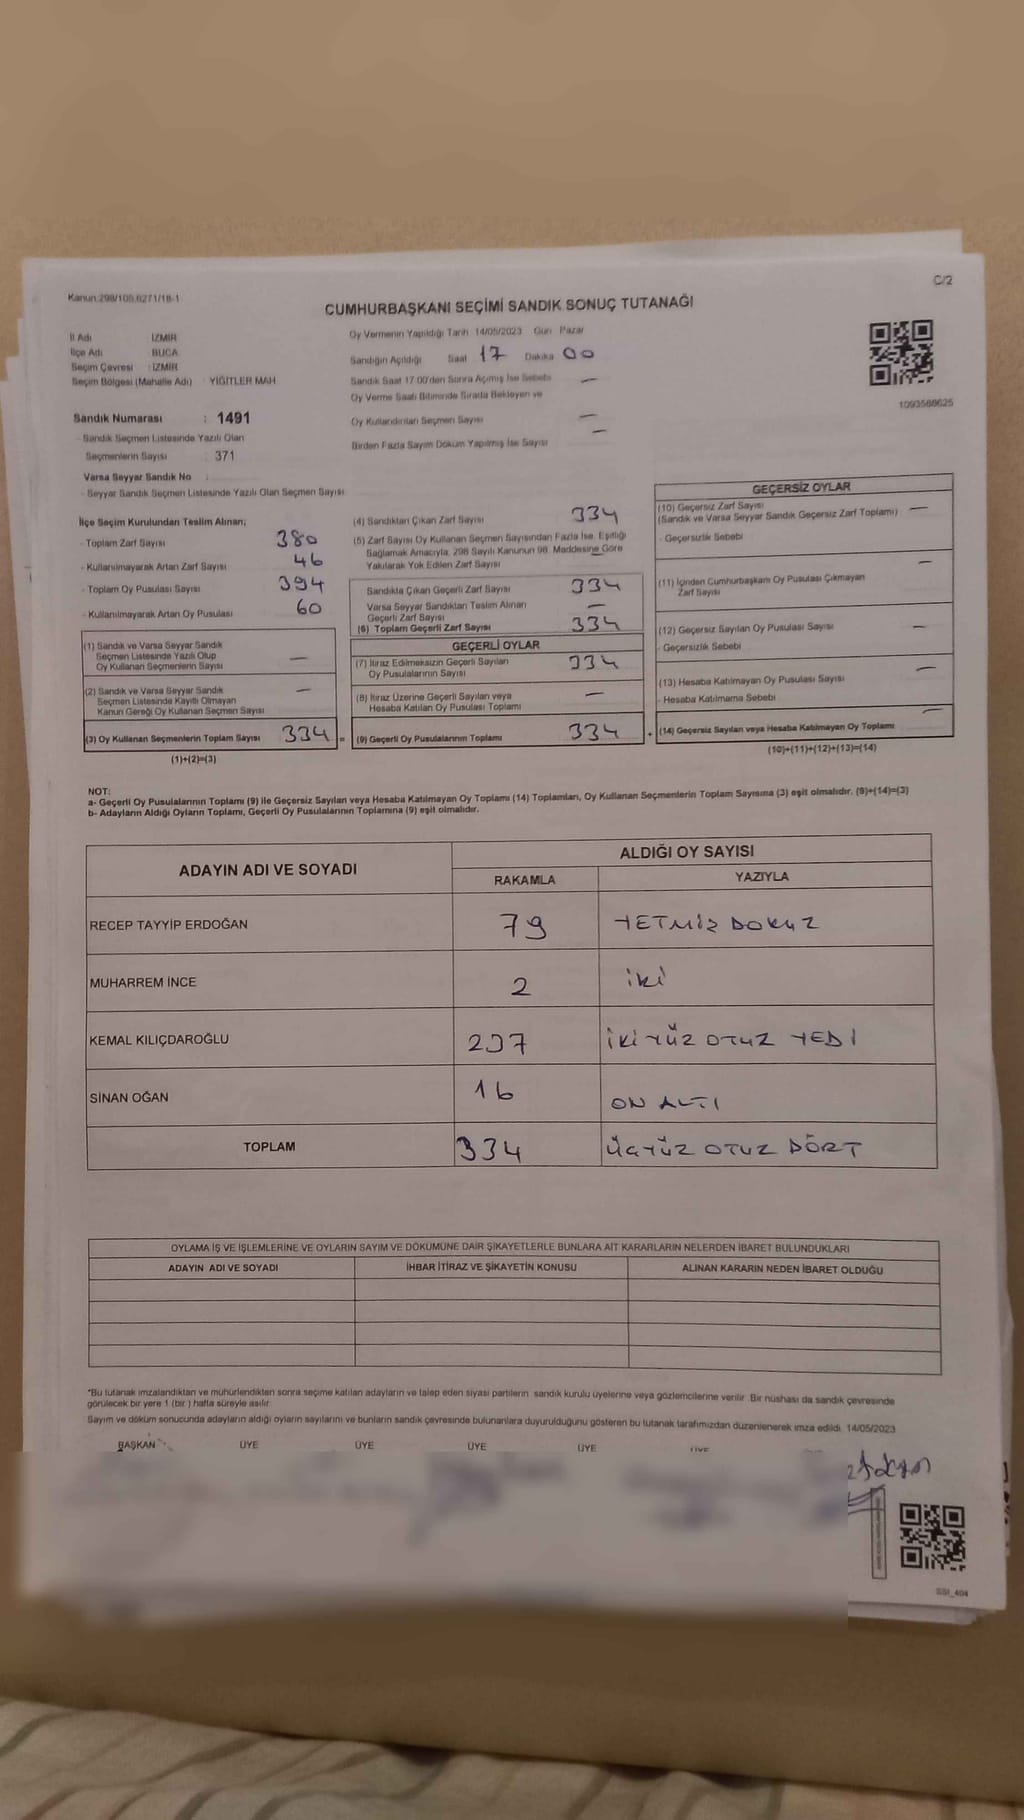 C/2
Kanun:298/105,6271/18-1
CUMHURBAŞKANI SEÇİMİ SANDIK SONUÇ TUTANAĞI
İl Adı İZMİR
İlçe Adı BUCA
Seçim Çevresi : İZMİR
Seçim Bölgesi (Mahalle Adı) : YİĞİTLER MAH
Sandık Numarası : 1491
- Sandık Seçmen Listesinde Yazılı Olan
Seçmenlerin Sayısı : 371
Varsa Seyyar Sandık No :
- Seyyar Sandık Seçmen Listesinde Yazılı Olan Seçmen Sayısı
Oy Vermenin Yapıldığı Tarih 14/05/2023 Gün Pazar
Sandığın Açıldığı Saat 17 Dakika 00
Sandık Saat 17:00'den Sonra Açımış İse Sebebi —
Oy Verme Saati Bitiminde Sırada Bekleyen ve
Oy Kullandırılan Seçmen Sayısı —
Birden Fazla Sayım Döküm Yapılmış İse Sayısı —
1093568625
İlçe Seçim Kurulundan Teslim Alınan;
- Toplam Zarf Sayısı 380
- Kullanılmayarak Artan Zarf Sayısı 46
- Toplam Oy Pusulası Sayısı 394
- Kullanılmayarak Artan Oy Pusulası 60
(1) Sandık ve Varsa Seyyar Sandık
Seçmen Listesinde Yazılı Olup
Oy Kullanan Seçmenlerin Sayısı —
(2) Sandık ve Varsa Seyyar Sandık
Seçmen Listesinde Kayıtlı Olmayan
Kanun Gereği Oy Kullanan Seçmen Sayısı —
(3) Oy Kullanan Seçmenlerin Toplam Sayısı 334 =
(1)+(2)=(3)
(4) Sandıktan Çıkan Zarf Sayısı 334
(5) Zarf Sayısı Oy Kullanan Seçmen Sayısından Fazla İse, Eşitliği
Sağlamak Amacıyla, 298 Sayılı Kanunun 98. Maddesine Göre
Yakılarak Yok Edilen Zarf Sayısı
Sandıkta Çıkan Geçerli Zarf Sayısı 334
Varsa Seyyar Sandıktan Teslim Alınan
Geçerli Zarf Sayısı —
(6) Toplam Geçerli Zarf Sayısı 334
GEÇERLİ OYLAR
(7) İtiraz Edilmeksizin Geçerli Sayılan
Oy Pusulalarının Sayısı 334
(8) İtiraz Üzerine Geçerli Sayılan veya
Hesaba Katılan Oy Pusulası Toplamı —
(9) Geçerli Oy Pusulalarının Toplamı 334 +
GEÇERSİZ OYLAR
(10) Geçersiz Zarf Sayısı
(Sandık ve Varsa Seyyar Sandık Geçersiz Zarf Toplamı) —
- Geçersizlik Sebebi
(11) İçinden Cumhurbaşkanı Oy Pusulası Çıkmayan
Zarf Sayısı —
(12) Geçersiz Sayılan Oy Pusulası Sayısı —
- Geçersizlik Sebebi
(13) Hesaba Katılmayan Oy Pusulası Sayısı —
- Hesaba Katılmama Sebebi
(14) Geçersiz Sayılan veya Hesaba Katılmayan Oy Toplamı —
(10)+(11)+(12)+(13)=(14)
NOT:
a- Geçerli Oy Pusulalarının Toplamı (9) ile Geçersiz Sayılan veya Hesaba Katılmayan Oy Toplamı (14) Toplamları, Oy Kullanan Seçmenlerin Toplam Sayısına (3) eşit olmalıdır. (9)+(14)=(3)
b- Adayların Aldığı Oyların Toplamı, Geçerli Oy Pusulalarının Toplamına (9) eşit olmalıdır.
ADAYIN ADI VE SOYADI ALDIĞI OY SAYISI
RAKAMLA YAZIYLA
RECEP TAYYİP ERDOĞAN 79 YETMİŞ DOKUZ
MUHARREM İNCE 2 İKİ
KEMAL KILIÇDAROĞLU 237 İKİ YÜZ OTUZ YEDİ
SİNAN OĞAN 16 ON ALTI
TOPLAM 334 ÜÇYÜZ OTUZ DÖRT
OYLAMA İŞ VE İŞLEMLERİNE VE OYLARIN SAYIM VE DÖKÜMÜNE DAİR ŞİKAYETLERLE BUNLARA AİT KARARLARIN NELERDEN İBARET BULUNDUKLARI
ADAYIN ADI VE SOYADI İHBAR İTİRAZ VE ŞİKAYETİN KONUSU ALINAN KARARIN NEDEN İBARET OLDUĞU
*Bu tutanak imzalandıktan ve mühürlendikten sonra seçime katılan adayların ve talep eden siyasi partilerin sandık kurulu üyelerine veya gözlemcilerine verilir. Bir nüshası da sandık çevresinde
görülecek bir yere 1 (bir ) hafta süreyle asılır.
Sayım ve döküm sonucunda adayların aldığı oyların sayılarını ve bunların sandık çevresinde bulunanlara duyurulduğunu gösteren bu tutanak tarafımızdan düzenlenerek imza edildi. 14/05/2023
BAŞKAN ÜYE ÜYE ÜYE ÜYE ÜYE
SSI_404